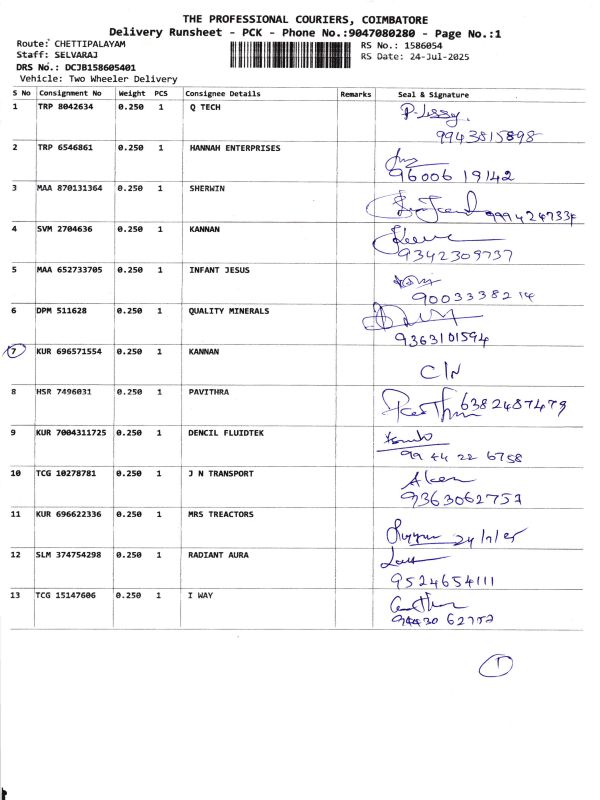 THE PROFESSIONAL COURIERS, COIMBATORE
Delivery Runsheet - PCK - Phone No.:9047080280 - Page No.:1
Route: CHETTIPALAYAM RS No.: 1586054
Staff: SELVARAJ RS Date: 24-Jul-2025
DRS No.: DCJB158605401
Vehicle: Two Wheeler Delivery
S No Consignment No Weight PCS Consignee Details Remarks Seal & Signature
1 TRP 8042634 0.250 1 Q TECH P. Lissy
9943815898
2 TRP 6546861 0.250 1 HANNAH ENTERPRISES
96006 19142
3 MAA 870131364 0.250 1 SHERWIN
9994247334
4 SVM 2704636 0.250 1 KANNAN
9342309737
5 MAA 652733705 0.250 1 INFANT JESUS
9003338214
6 DPM 511628 0.250 1 QUALITY MINERALS
9363101594
7 KUR 696571554 0.250 1 KANNAN
C/N
8 HSR 7496031 0.250 1 PAVITHRA 6382487479
9 KUR 7004311725 0.250 1 DENCIL FLUIDTEK
99 44 22 6758
10 TCG 10278781 0.250 1 J N TRANSPORT
9363062757
11 KUR 696622336 0.250 1 MRS TREACTORS
24/7/25
12 SLM 374754298 0.250 1 RADIANT AURA
9524654111
13 TCG 15147606 0.250 1 I WAY
94430 62757
1